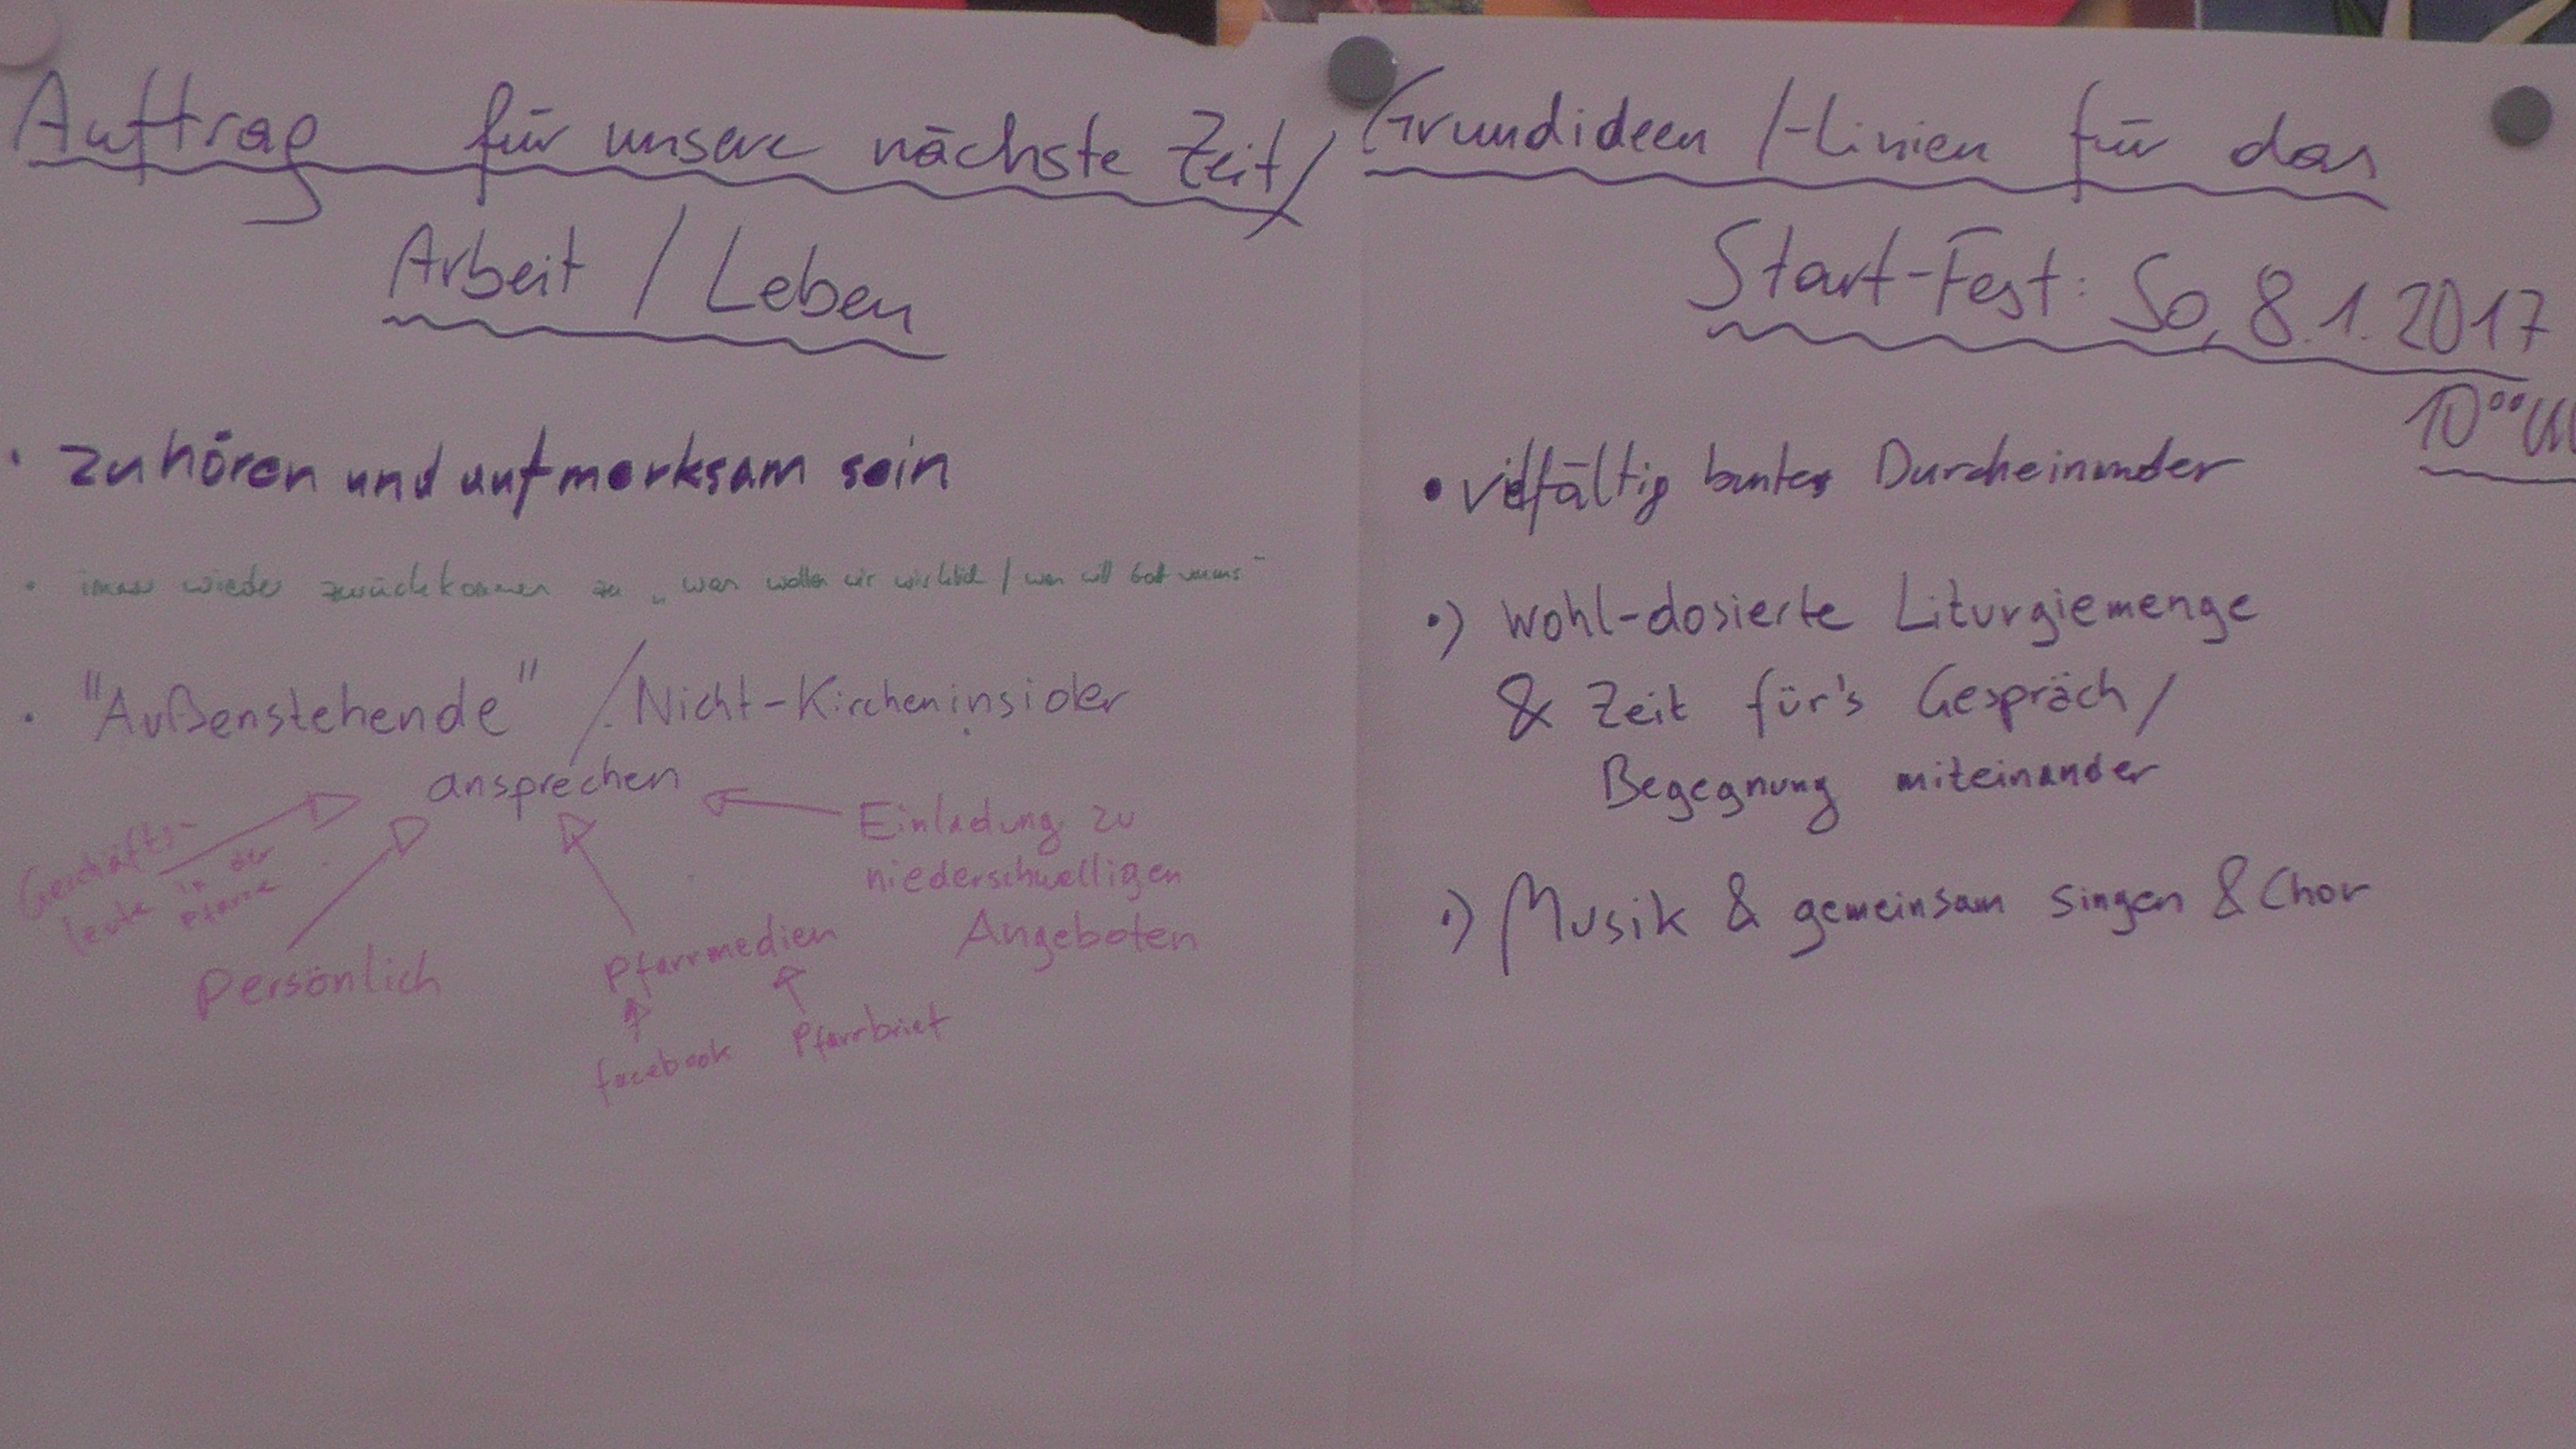 Auftrag für unsere nächste Zeit/
Arbeit / Leben
• zuhören und aufmerksam sein
• immer wieder zurückkommen zu „was wollen wir wirklich / was will Gott von uns"
• "Außenstehende" / Nicht-Kircheninsider
ansprechen
Geschäfts-
leute in der
Pfarre
Persönlich
Pfarrmedien
facebook Pfarrbrief
Einladung zu
niederschwelligen
Angeboten
Grundideen /-linien für das
Start-Fest: So, 8.1.2017
10⁰⁰ Uh
• vielfältig buntes Durcheinander
•) Wohl-dosierte Liturgiemenge
& Zeit für's Gespräch /
Begegnung miteinander
•) Musik & gemeinsam singen & Chor